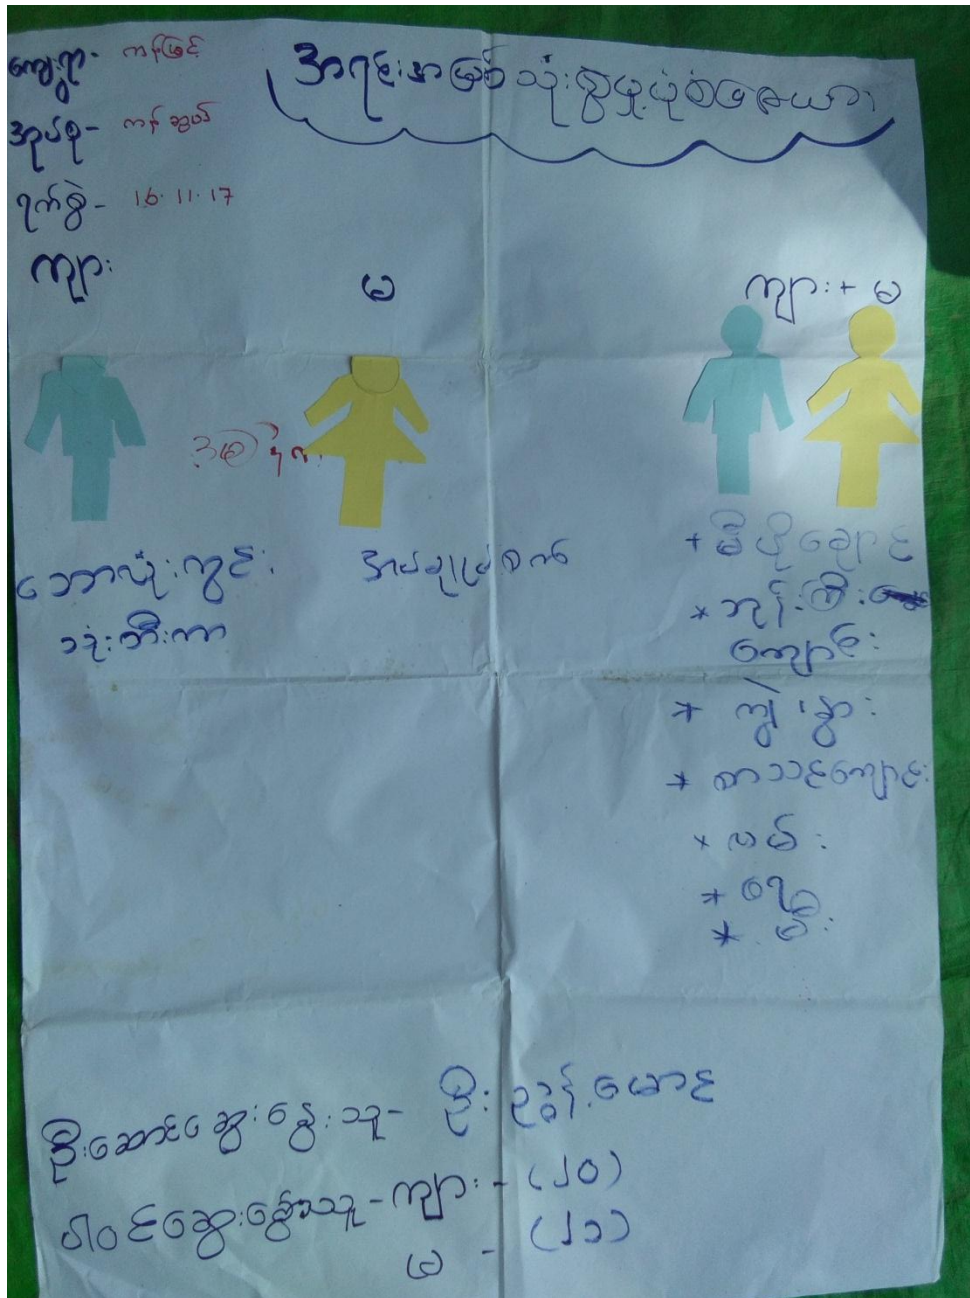 ကျေးရွာ- ကန်ဖြင့်
အုပ်စု- ကန်ဆွယ်
ရက်စွဲ- 16.11.17
အရင်းအမြစ်သုံးစွဲမှုပုံစံဇယား
ကျား
မ
ကျား + မ
ဘောလုံးကွင်း
သုံးဘီးကား
အပ်ချုပ်စက်
+ မီပို
* ဘုန်းကြီး
ကျောင်း
* ကျွဲ၊ နွား
* စာသင်ကျောင်း
* လမ်း
* ရေ
* မီး
ဦးဆောင်ဆွေးနွေးသူ- ဦးညွန့်မောင်
ပါဝင်ဆွေးနွေးသူ - ကျား - (၂၀)
မ - (၂၁)